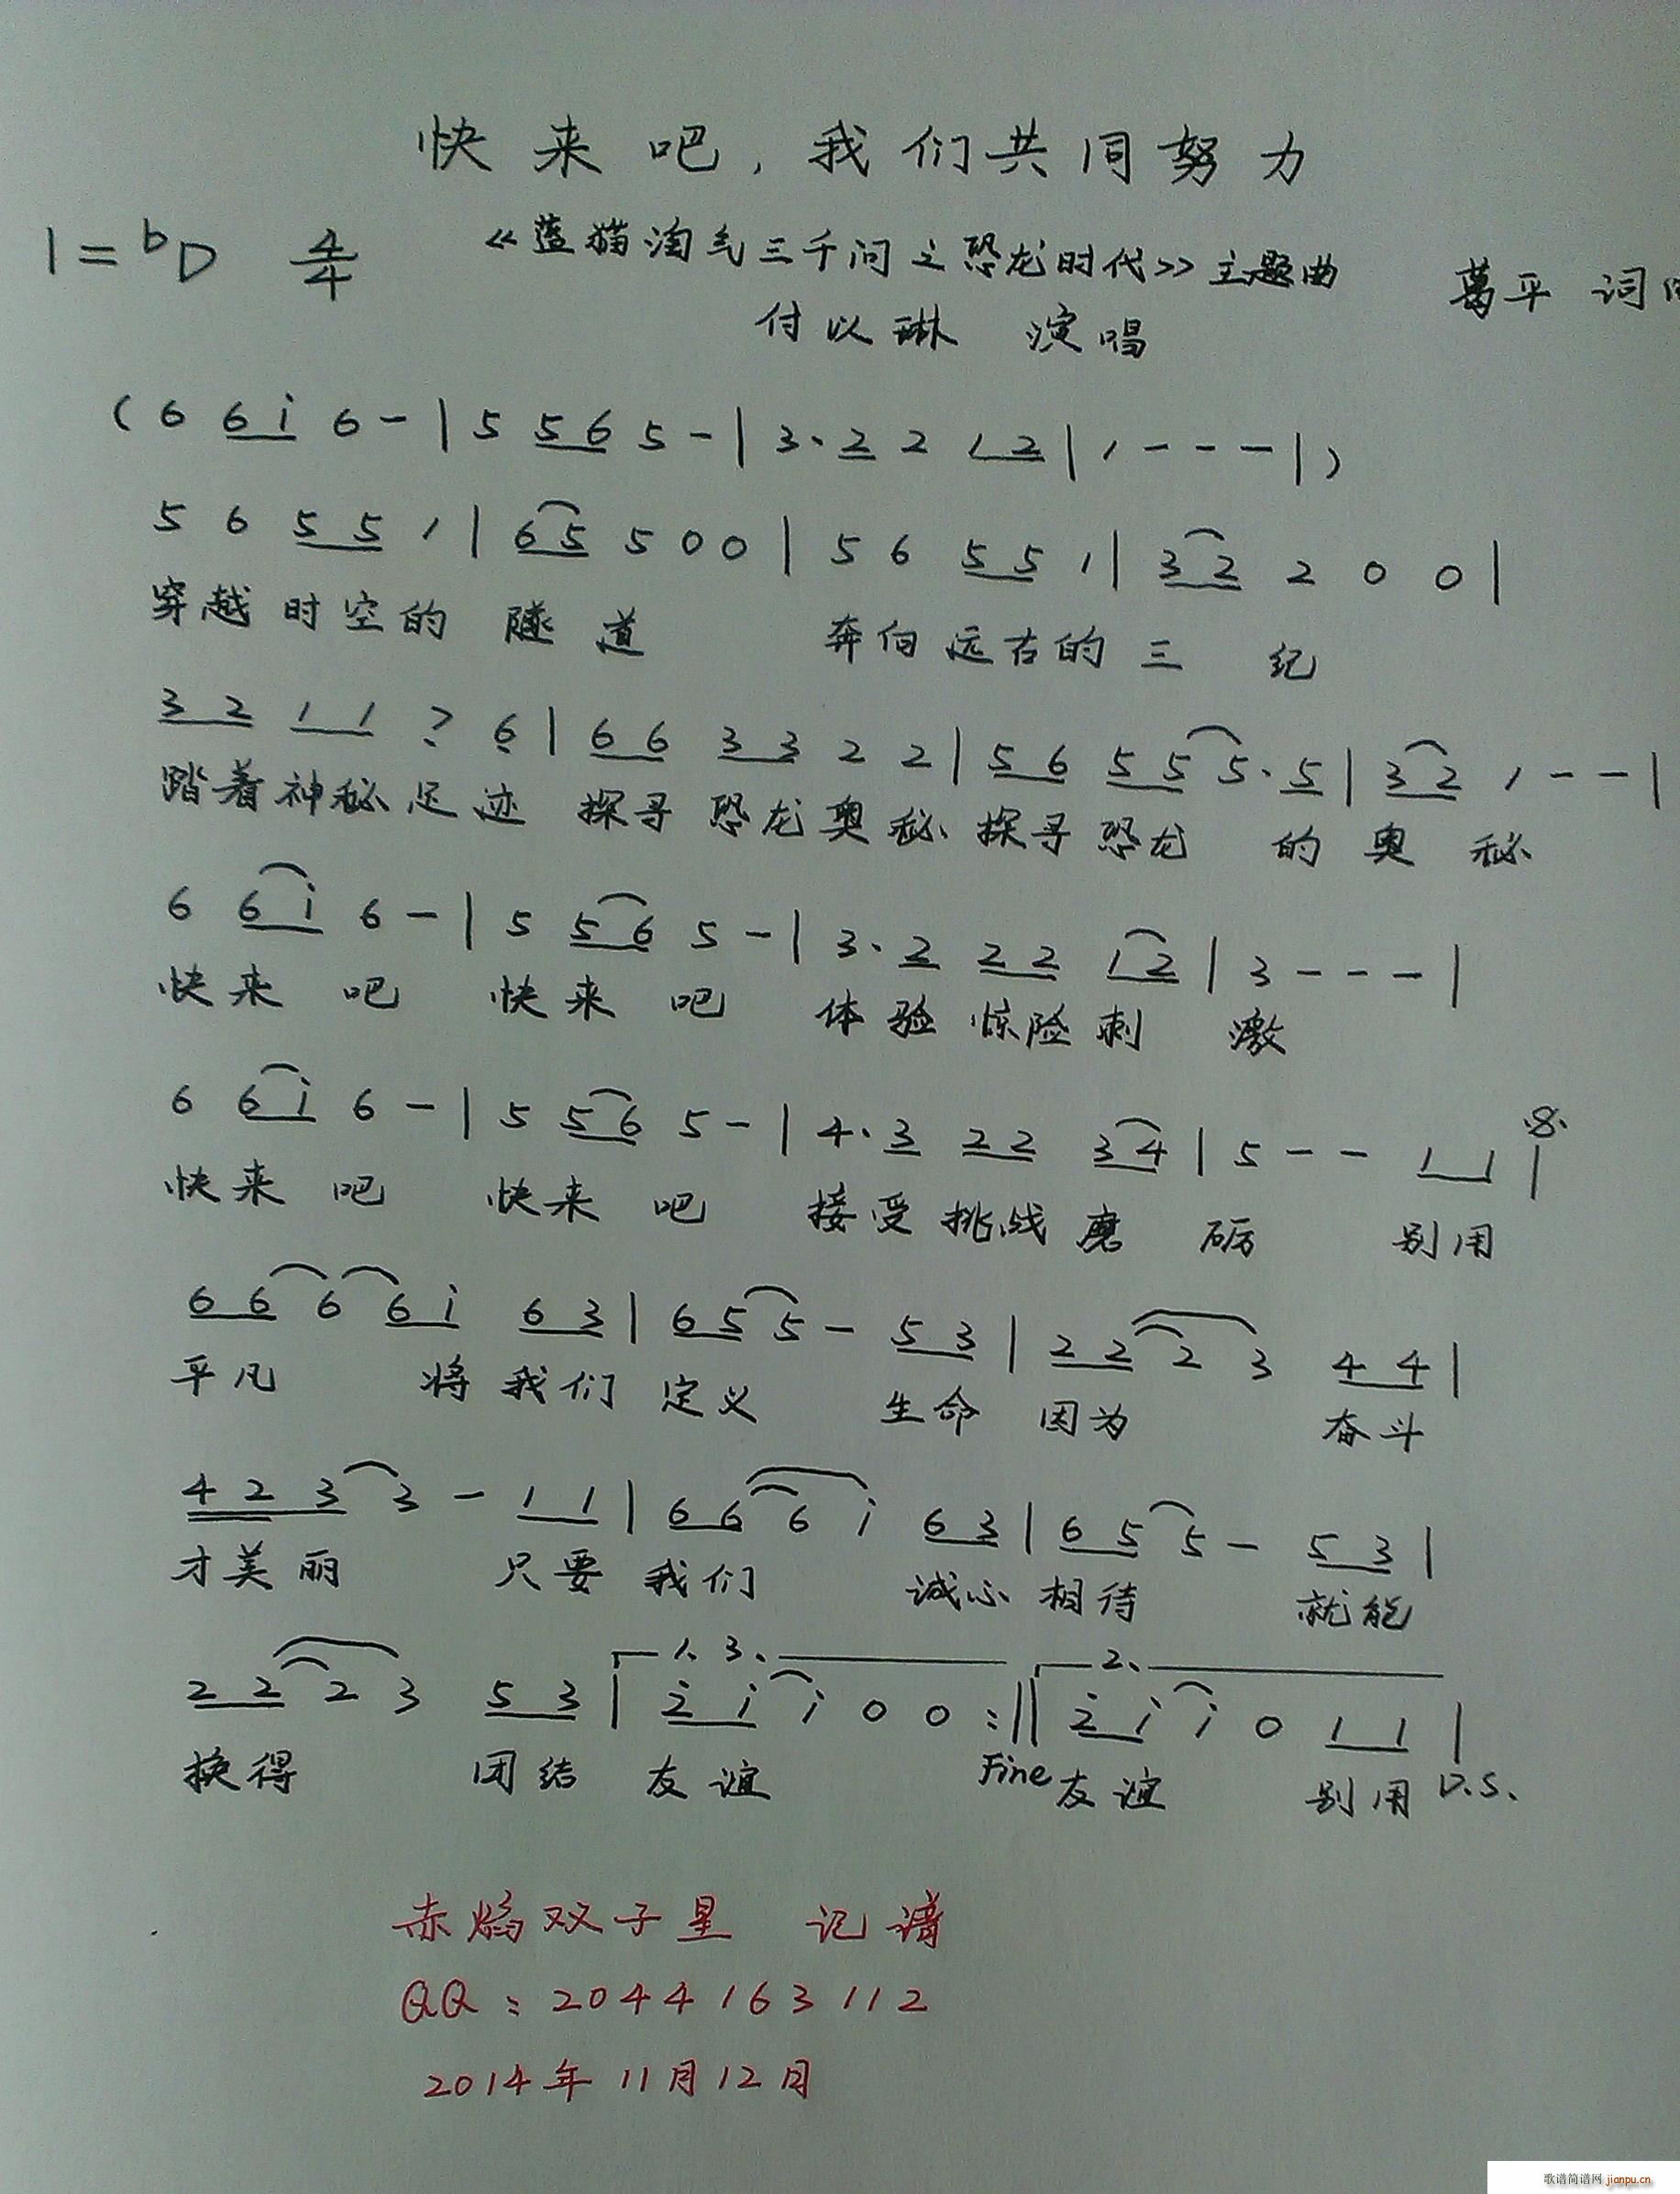 快来吧，我们共同努力
1=bD 4/4 《蓝猫淘气三千问之恐龙时代》主题曲 葛平 词
付以琳 演唱
(6 6 i 6 - | 5 5 6 5 - | 3. 2 2 1 2 | 1 - - - |)
5 6 5 5 1 | 6 5 5 0 0 | 5 6 5 5 1 | 3 2 2 0 0 |
穿越时空的隧道 奔向远古的三纪
3 2 1 1 7 6 | 6 6 3 3 2 2 | 5 6 5 5 5. 5 | 3 2 1 - - |
踏着神秘足迹 探寻恐龙奥秘 探寻恐龙 的奥秘
6 6 i 6 - | 5 5 6 5 - | 3. 2 2 2 1 2 | 3 - - - |
快来吧 快来吧 体验惊险刺激
6 6 i 6 - | 5 5 6 5 - | 4. 3 2 2 3 4 | 5 - - 1 1 |
快来吧 快来吧 接受挑战磨砺 别用
6 6 6 6 i 6 3 | 6 5 5 - 5 3 | 2 2 2 3 4 4 |
平凡 将我们定义 生命因为 奋斗
4 2 3 3 - 1 1 | 6 6 6 i 6 3 | 6 5 5 - 5 3 |
才美丽 只要我们 诚心相待 就能
1、3、 2、
2 2 2 3 5 3 | 2 i i 0 0 :|| 2 i i 0 1 1 |
换得 团结友谊 Fine 友谊 别用 D.S.
赤焰双子星 记谱
QQ：2044163112
2014年11月12日
歌谱简谱网 jianpu.cn